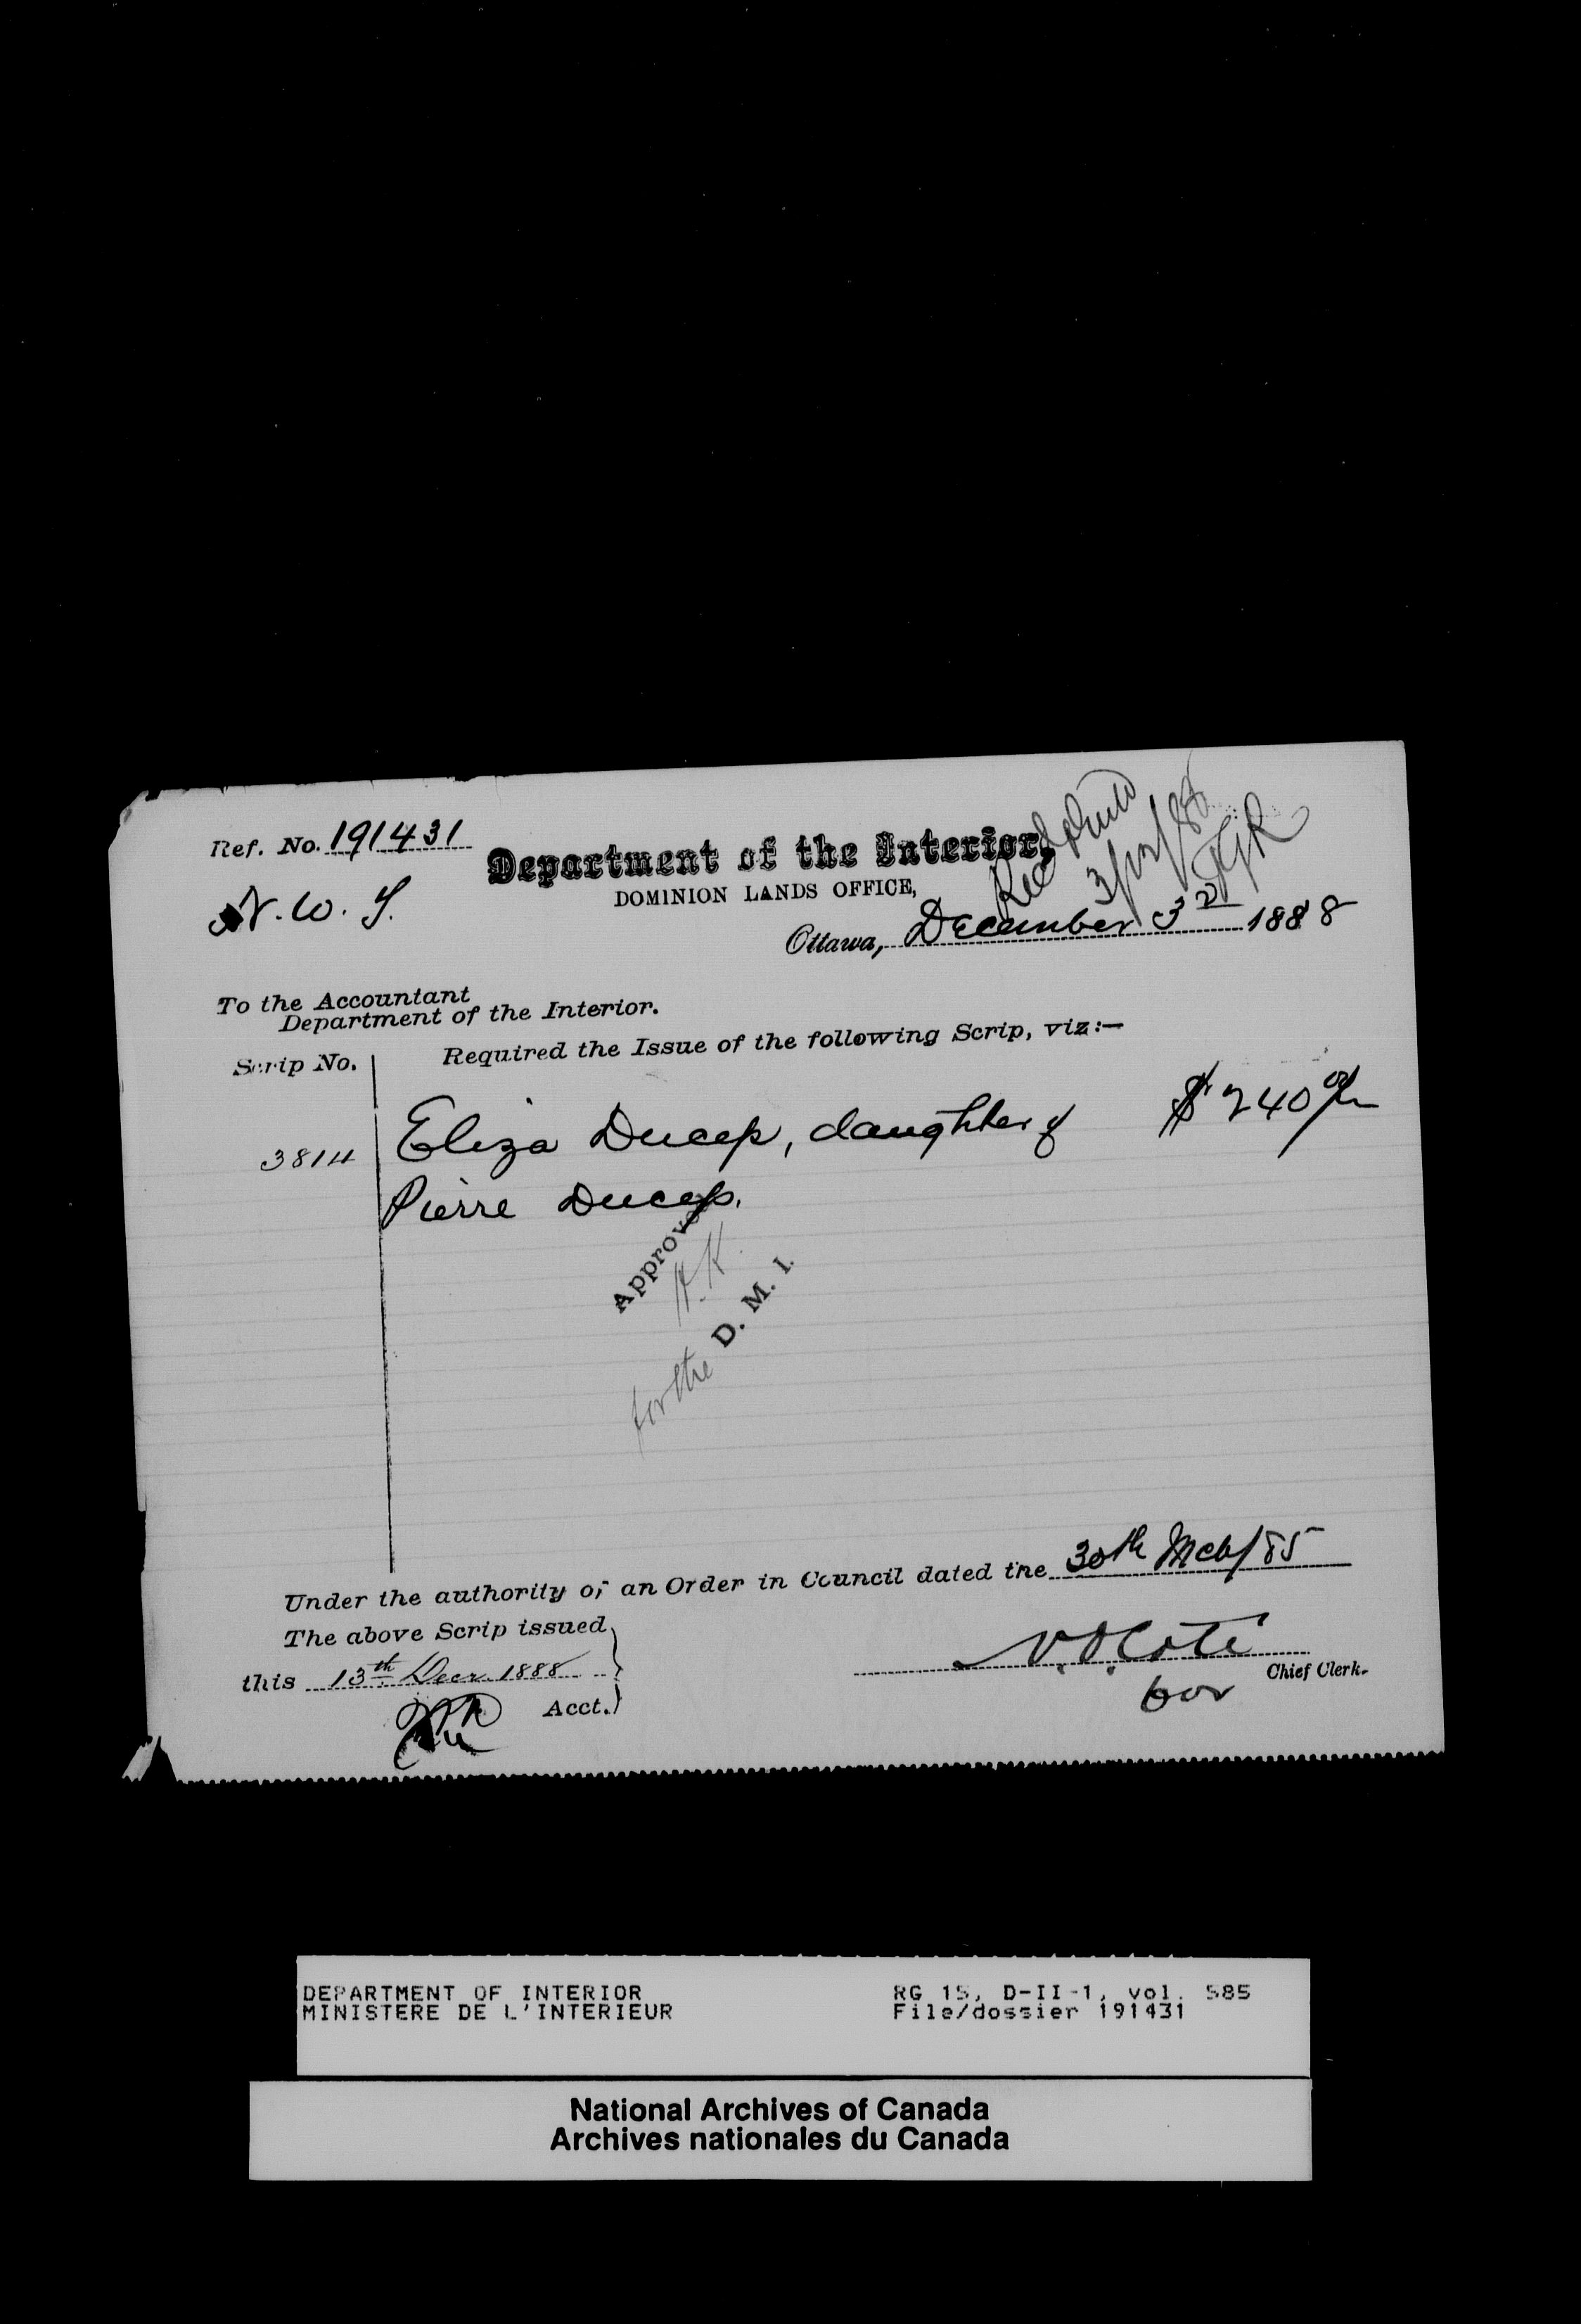 Ref. No. 191431
N. W. T.
Department of the Interior,
DOMINION LANDS OFFICE,
Ottawa, December 3rd 1888
3/12/88
To the Accountant
Department of the Interior.
Scrip No.
Required the Issue of the following Scrip, viz:—
3814
Eliza Ducep, daughter of $240 00/
Pierre Ducep.
Approved
for the D. M. I.
Under the authority of an Order in Council dated the 30th Mch/85
The above Scrip issued
this 13th Decr. 1888
Acct.
N. O. Coté
for Chief Clerk.
DEPARTMENT OF INTERIOR
MINISTERE DE L'INTERIEUR
RG 15, D-II-1, vol. 585
File/dossier 191431
National Archives of Canada
Archives nationales du Canada